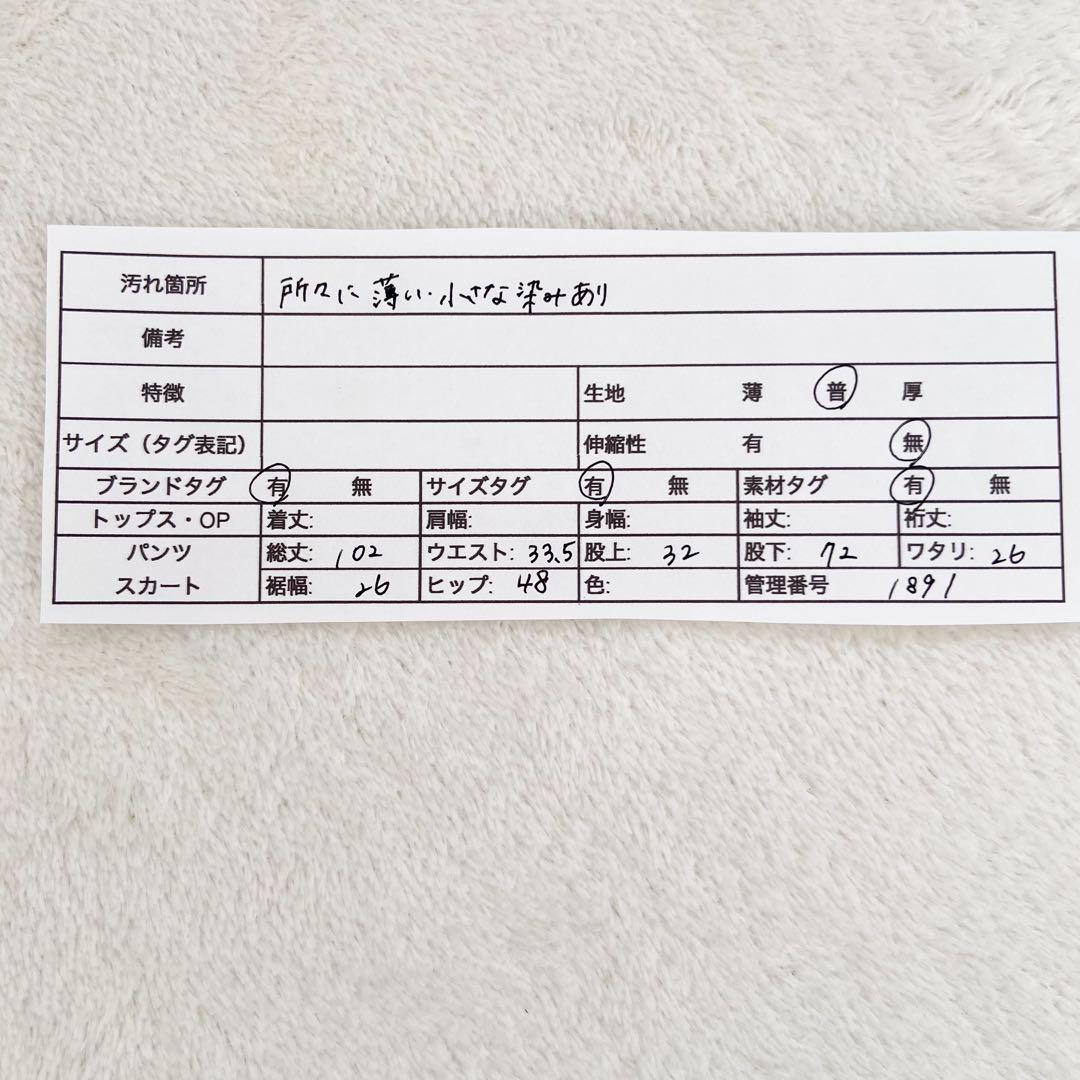 汚れ箇所 所々に薄い・小さな染みあり
備考
特徴 生地 薄 普 厚
サイズ（タグ表記） 伸縮性 有 無
ブランドタグ 有 無 サイズタグ 有 無 素材タグ 有 無
トップス・OP 着丈: 肩幅: 身幅: 袖丈: 裄丈:
パンツ 総丈: 102 ウエスト: 33.5 股上: 32 股下: 72 ワタリ: 26
スカート 裾幅: 26 ヒップ: 48 色: 管理番号 1891